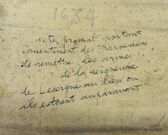 1634
acte promat portant
consentement des paroissiens
de remettre les armes
de la seigneurie
de Lescagne au lieu ou
ils estoient auparavant